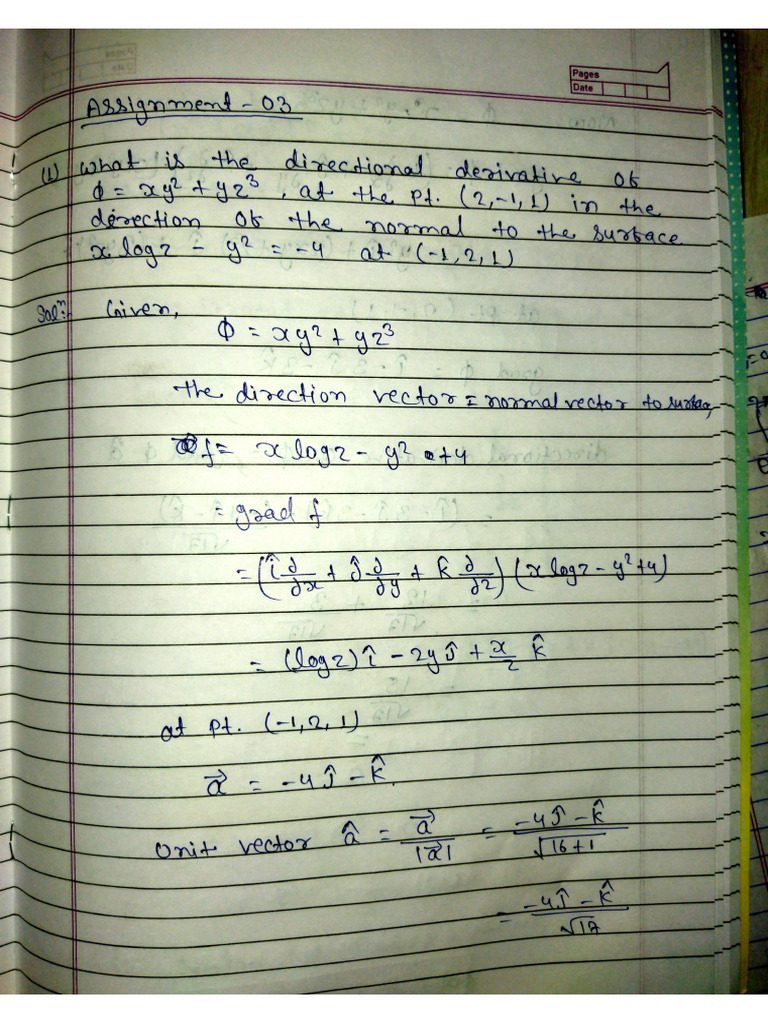 Pages
Date
Assignment - 03
(1) What is the directional derivative of
φ = xy² + yz³, at the pt. (2,-1,1) in the
direction of the normal to the surface
x log z - y² = -4 at (-1,2,1)
Solⁿ: Given,
φ = xy² + yz³
The direction vector = normal vector to surface
f = x log z - y² + 4
= grad f
= (î ∂/∂x + ĵ ∂/∂y + k̂ ∂/∂z) (x log z - y² + 4)
= (log z) î - 2y ĵ + x/z k̂
at pt. (-1,2,1)
a⃗ = -4ĵ - k̂.
Unit vector â = a⃗/|a⃗| = (-4ĵ - k̂)/√(16+1)
= (-4ĵ - k̂)/√17